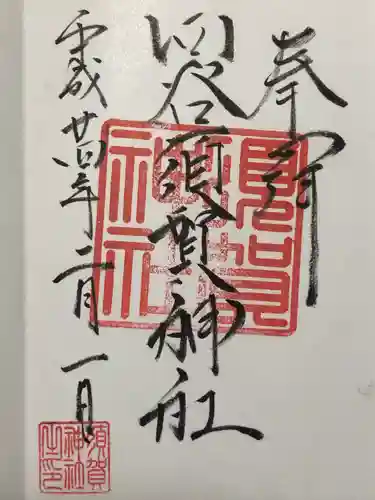 奉拝
四谷須賀神社
平成廿四年二月一日
須賀神社
須賀神社之印